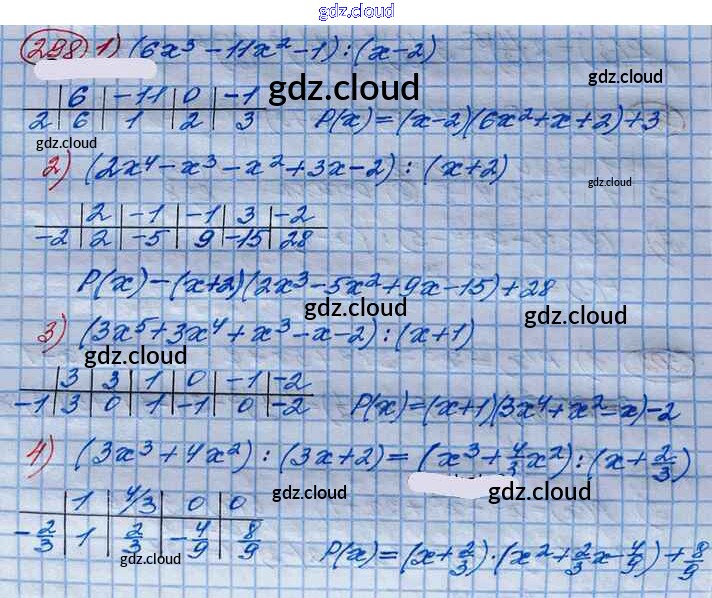 gdz.cloud
298 1) (6x³ - 11x² - 1) : (x - 2)
gdz.cloud
gdz.cloud
6 | -11 | 0 | -1
2 | 6 | 1 | 2 | 3 P(x) = (x-2)(6x²+x+2)+3
gdz.cloud
2) (2x⁴ - x³ - x² + 3x - 2) : (x + 2)
gdz.cloud
2 | -1 | -1 | 3 | -2
-2 | 2 | -5 | 9 | -15 | 28
P(x) - (x+2)(2x³ - 5x² + 9x - 15) + 28
gdz.cloud
gdz.cloud
3) (3x⁵ + 3x⁴ + x³ - x - 2) : (x + 1)
gdz.cloud
3 | 3 | 1 | 0 | -1 | -2
-1 | 3 | 0 | 1 | -1 | 0 | -2 P(x) = (x+1)(3x⁴ + x² = x) - 2
gdz.cloud
4) (3x³ + 4x²) : (3x + 2) = (x³ + 4/3 x²) : (x + 2/3)
gdz.cloud
gdz.cloud
1 | 4/3 | 0 | 0
-2/3 | 1 | 2/3 | -4/9 | 8/9 P(x) = (x + 2/3) · (x² + 2/3 x - 4/9) + 8/9
gdz.cloud
gdz.cloud